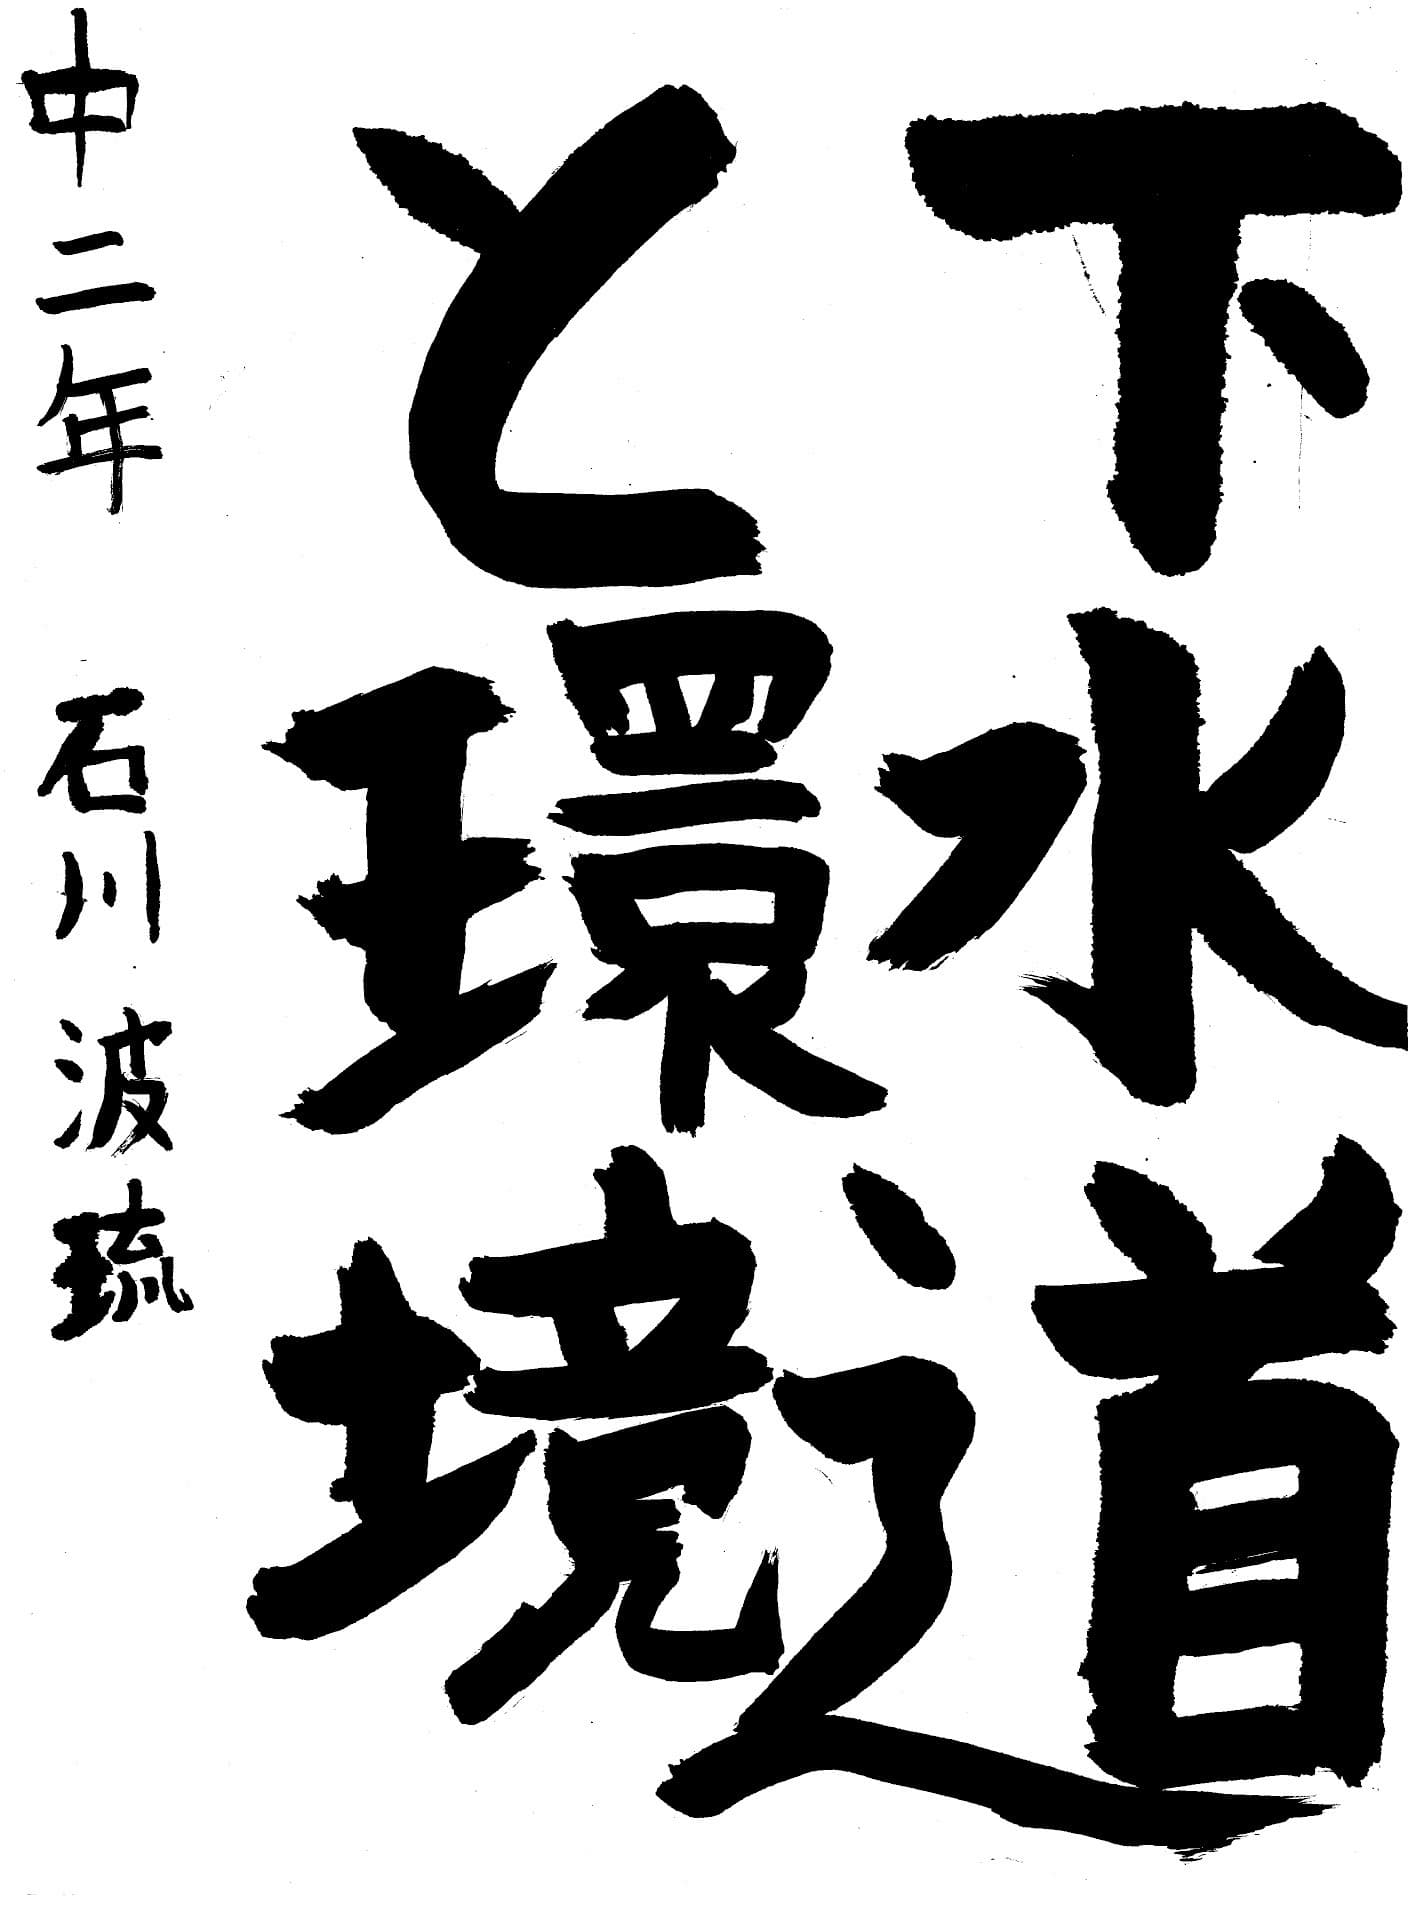 下水道
と環境
中二年 石川波琉